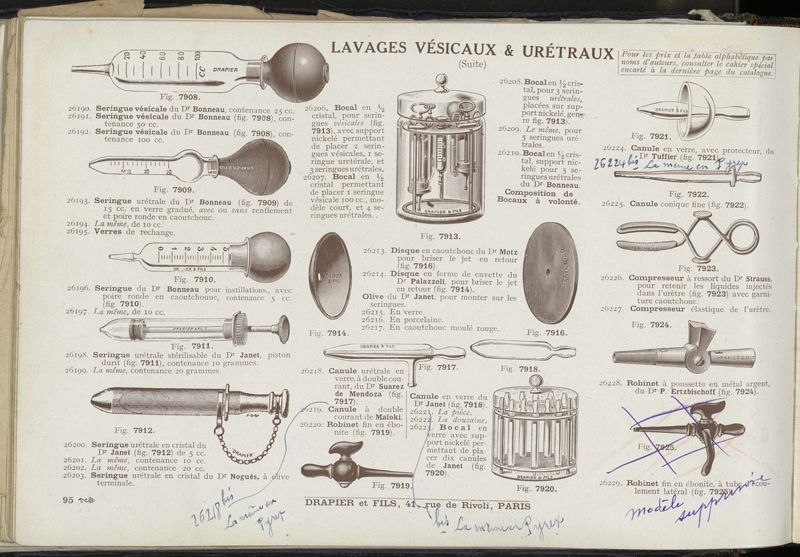 LAVAGES VÉSICAUX & URÉTRAUX
(Suite)
Pour les prix et la table alphabétique par
noms d'auteurs, consulter le cahier spécial
encarté à la dernière page du catalogue.
20 40 60 80 100
CC
DRAPIER
Fig. 7908.
26190. Seringue vésicale du Dr Bonneau, contenance 25 cc.
26191. Seringue vésicale du Dr Bonneau (fig. 7908), con-
tenance 50 cc.
26192. Seringue vésicale du Dr Bonneau (fig. 7908), con-
tenance 100 cc.
Fig. 7909.
26193. Seringue urétrale du Dr Bonneau (fig. 7909) de
15 cc. en verre gradué, avec ou sans renflement
et poire ronde en caoutchouc.
26194. La même, de 10 cc.
26195. Verres de rechange.
Fig. 7910.
26196. Seringue du Dr Bonneau pour instillations, avec
poire ronde en caoutchouc, contenance 5 cc.
(fig. 7910).
26197 La même, de 10 cc.
Fig. 7911.
26198. Seringue urétrale stérilisable du Dr Janet, piston
durit (fig. 7911), contenance 10 grammes.
26199. La même, contenance 20 grammes.
DRAPIER
Fig. 7912.
26200. Seringue urétrale en cristal du
Dr Janet (fig. 7912) de 5 cc.
26201. La même, contenance 10 cc.
26202. La même, contenance 20 cc.
26203. Seringue urétrale en cristal du Dr Noguès, à olive
terminale.
26206. Bocal en ½
cristal, pour serin-
gues vésicales (fig.
7913), avec support
nickelé permettant
de placer 2 serin-
gues vésicales, 1 se-
ringue uretérale, et
3 seringues urétrales.
26207. Bocal en ½
cristal permettant
de placer 1 seringue
vésicale 100 cc., mo-
dèle court, et 4 se-
ringues urétrales. .
DRAPIER & FILS
Fig. 7913.
26208. Bocal en ½ cris-
tal, pour 3 serin-
gues urétrales,
placées sur sup-
port nickelé, gen-
re fig. 7913.
26209. Le même, pour
5 seringues uré-
trales.
26210. Bocal en ½ cris-
tal, support nic-
kelé pour 5 se-
ringues urétrales
du Dr Bonneau.
Composition de
Bocaux à volonté.
Fig. 7914.
26213. Disque en caoutchouc du Dr Motz
pour briser le jet en retour
(fig. 7916).
26214. Disque en forme de cuvette du
Dr Palazzoli, pour briser le jet
en retour (fig. 7914).
Olive du Dr Janet, pour monter sur les
seringues.
26215. En verre.
26216. En porcelaine.
26217. En caoutchouc moulé rouge.
Fig. 7916.
DRAPIER & FILS
Fig. 7917.
Fig. 7918.
26218. Canule urétrale en
verre, à double cou-
rant, du Dr Suarez
de Mendoza (fig.
7917).
26219. Canule à double
courant de Maïoki.
26220. Robinet fin en ébo-
nite (fig. 7919).
Canule en verre du
Dr Janet (fig. 7918).
26221. La pièce.
26222. La douzaine.
26223. Bocal en
verre avec sup-
port nickelé per-
mettant de pla-
cer dix canules
de Janet (fig.
7920).
Fig. 7919.
DRAPIER & FILS
Fig. 7920.
Fig. 7921.
26224. Canule en verre, avec protecteur, du
Dr Tuffier (fig. 7921).
26224 bis La meme en Pyrex
Fig. 7922.
26225. Canule conique fine (fig. 7922).
Fig. 7923.
26226. Compresseur à ressort du Dr Strauss,
pour retenir les liquides injectés
dans l'urètre (fig. 7923) avec garni-
ture caoutchouc.
26227 Compresseur élastique de l'urètre.
Fig. 7924.
26228. Robinet à poussette en métal argent,
du Dr P. Ertzbischoff (fig. 7924).
Fig. 7925.
26229. Robinet fin en ébonite, à tube d'écou-
lement latéral (fig. 7925).
modèle supprimée
95
26218 bis
La même en
Pyrex
DRAPIER et FILS, 41, rue de Rivoli, PARIS
bis La meme en Pyrex